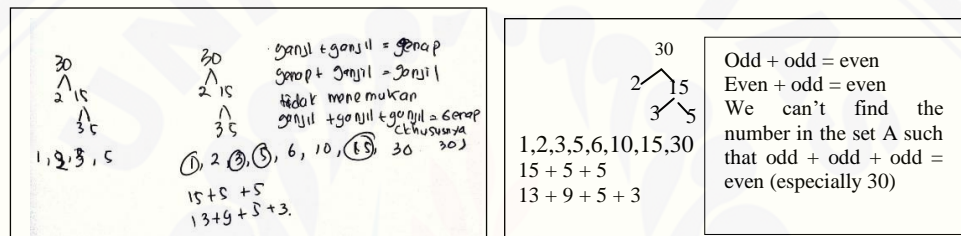 30
2 15
3 5
1, 2, 3, 5
30
2 15
3 5
ganjil + ganjil = genap
genap + ganjil = ganjil
tidak menemukan
ganjil + ganjil + ganjil = Genap
30)
1, 2, 3, 5, 6, 10, 15, 30
15+5+5
13+9+5+3.
30
2 15
3 5
1,2,3,5,6,10,15,30
15 + 5 + 5
13 + 9 + 5 + 3
Odd + odd = even
Even + odd = even
We can't find the
number in the set A such
that odd + odd + odd =
even (especially 30)